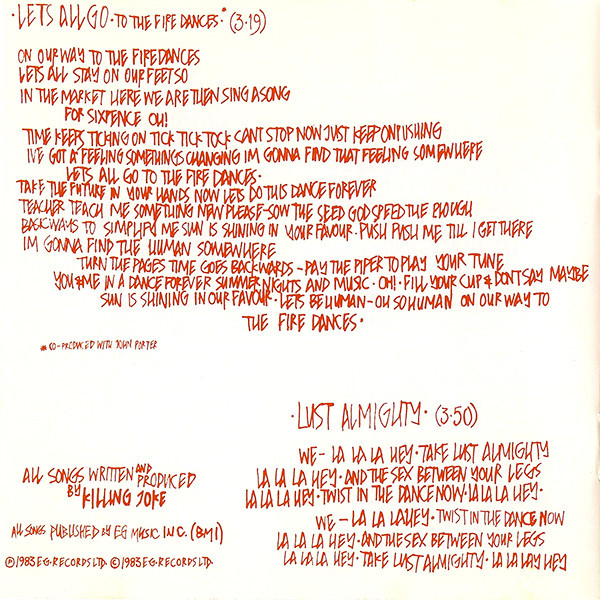 ·LETS ALL GO·TO THE FIRE DANCES·* (3·19)
ON OUR WAY TO THE FIREDANCES
LETS ALL STAY ON OUR FEET SO
IN THE MARKET HERE WE ARE THEN SING A SONG
FOR SIXPENCE OH!
TIME KEEPS TICKING ON TICK TICK TOCK CANT STOP NOW JUST KEEP ON PUSHING
I'VE GOT A FEELING SOMETHINGS CHANGING IM GONNA FIND THAT FEELING SOMEWHERE
LETS ALL GO TO THE FIRE DANCES·
TAKE THE FUTURE IN YOUR HANDS NOW LETS DO THIS DANCE FOREVER
TEACHER TEACH ME SOMETHING NEW PLEASE-SOW THE SEED GOD SPEED THE PLOUGH
BASIC WAYS TO SIMPLIFY ME SUN IS SHINING IN YOUR FAVOUR·PUSH PUSH ME TILL I GET THERE
IM GONNA FIND THE HUMAN SOMEWHERE
TURN THE PAGES TIME GOES BACKWARDS-PAY THE PIPER TO PLAY YOUR TUNE
YOU & ME IN A DANCE FOREVER SUMMER NIGHTS AND MUSIC·OH!·FILL YOUR CUP & DONT SAY MAYBE
SUN IS SHINING IN OUR FAVOUR·LETS BE HUMAN-OH SO HUMAN ON OUR WAY TO
THE FIRE DANCES·
* CO-PRODUCED WITH JOHN PORTER
·LUST ALMIGHTY· (3·50)
WE- LA LA LA HEY·TAKE LUST ALMIGHTY
LA LA LA HEY·AND THE SEX BETWEEN YOUR LEGS
LA LA LA HEY·TWIST IN THE DANCE NOW·LA LA LA HEY·
WE-LA LA LA HEY·TWIST IN THE DANCE NOW
LA LA LA HEY·AND THE SEX BETWEEN YOUR LEGS
LA LA LA HEY·TAKE LUST ALMIGHTY·LA LA LAY HEY
ALL SONGS WRITTEN AND PRODUCED
BY KILLING JOKE
ALL SONGS PUBLISHED BY EG MUSIC INC. (BMI)
℗1983 E.G. RECORDS LTD. ©1983 E.G. RECORDS LTD.